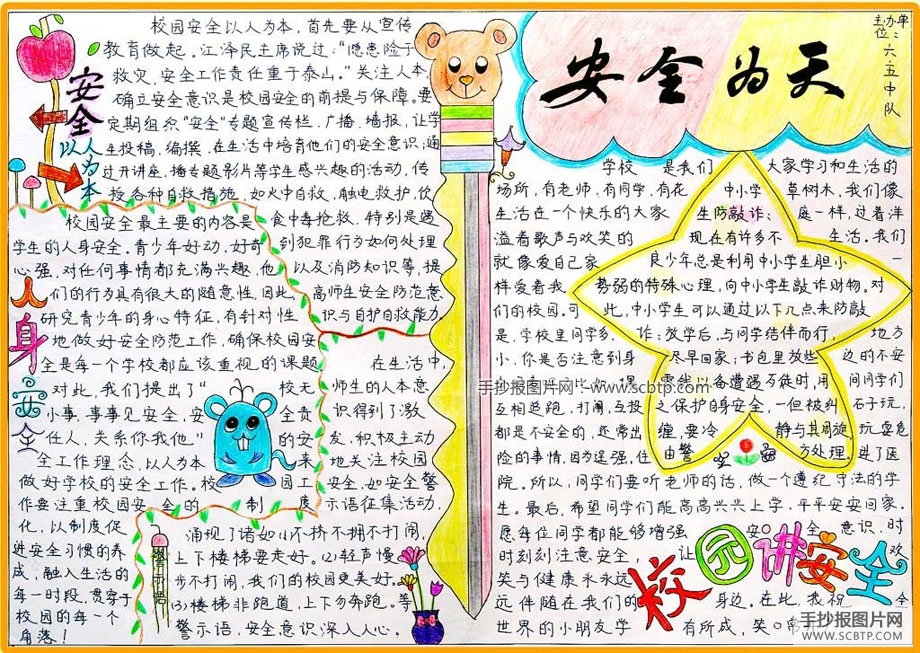 安全为天
主办单位：六·五中队
安全
以人为本
校园安全以人为本，首先要从宣传
教育做起。江泽民主席说过：“隐患险于
救灾，安全工作责任重于泰山。”关注人本
确立安全意识是校园安全的前提与保障。要
定期组织“安全”专题宣传栏，广播、墙报，让学
生投稿，编撰，在生活中培育他们的安全意识；通
过开讲座，播专题影片等学生感兴趣的活动，传
授各种自救措施，如火中自救，触电救护，饮
食中毒抢救，特别是遇
到犯罪行为如何处理
以及消防知识等，提
高师生安全防范意
识与自护自救能力
人身安全
校园安全最主要的内容是
学生的人身安全。青少年好动，好奇
心强，对任何事情都充满兴趣，他
们的行为具有很大的随意性，因此，
研究青少年的身心特征，有针对性
地做好安全防范工作，确保校园安
全是每一个学校都应该重视的课题
对此，我们提出了“校无
小事，事事见安全，安全责
任人，关系你我他”的安
全工作理念，以人为本
做好学校的安全工作。校园工
作要注重校园安全的制度
化，以制度促
进安全习惯的养
成，融入生活的
每一时段，贯穿于
校园的每一个
角落！
在生活中，
师生的人本意
识得到了激
发，积极主动
地关注校园
安全，如安全警
示语征集活动，
涌现了诸如⑴不挤不拥不打闹，
上下楼梯要走好。⑵轻声慢
步不打闹，我们的校园更美好。
⑶楼梯非跑道，上下勿奔跑。等
警示语，安全意识深入人心。
学校是我们大家学习和生活的
场所，有老师，有同学，有花草树木，我们像
生活在一个快乐的大家庭一样，过着洋
溢着歌声与欢笑的生活。我们
就像爱自己家一
样爱着我
们的校园。可
是，学校里同学多，地方
小，你是否注意到身边的不安
互相追跑，打闹，互投石子玩，
都是不安全的，还常出玩耍危
险的事情，因为逞强，住进了医
院。所以，同学们要听老师的话，做一个遵纪守法的学
生。最后，希望同学们能高高兴兴上学，平平安安回家。
愿每位同学都能够增强安全意识，时
时刻刻注意安全，让欢
笑与健康永永远
远伴随在我们的身边。在此，我祝全
世界的小朋友学有所成，笑口常
中小学
生防敲诈：
现在有许多不
良少年总是利用中小学生胆小
势弱的特殊心理，向中小学生敲诈财物。对
此，中小学生可以通过以下几点来防敲
诈：放学后，与同学结伴而行，
尽早回家；书包里放些
零钱以备遭遇歹徒时，用
之保护自身安全，一但被纠
缠，要冷静与其周旋，
由警方处理，
校园讲安全
手抄报图片网：www.scbtp.com
手抄报图片网
WWW.SCBTP.COM